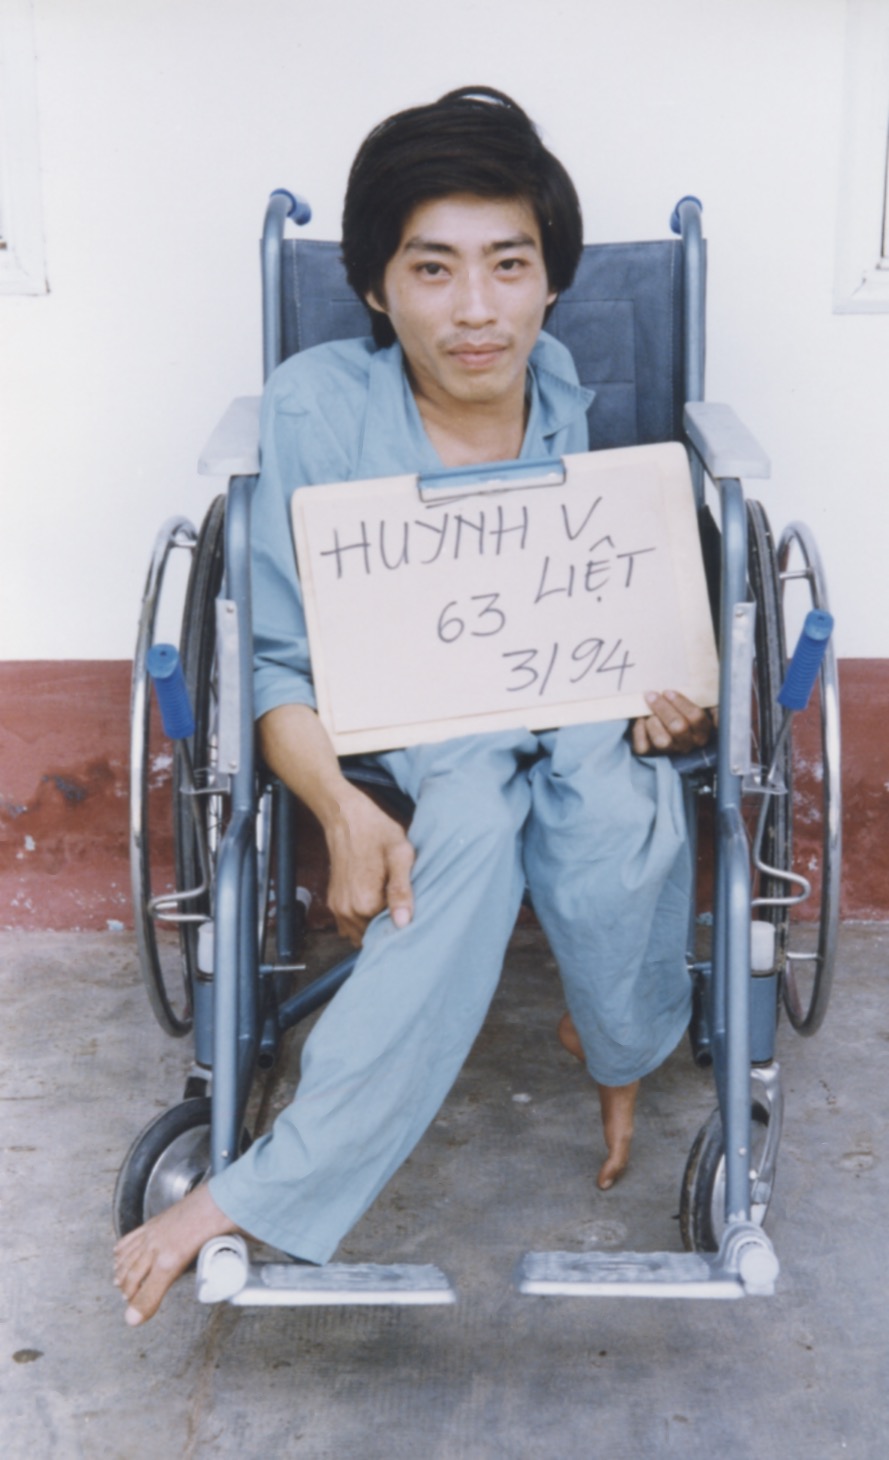 HUỲNH V
LIỆT
63
3/94